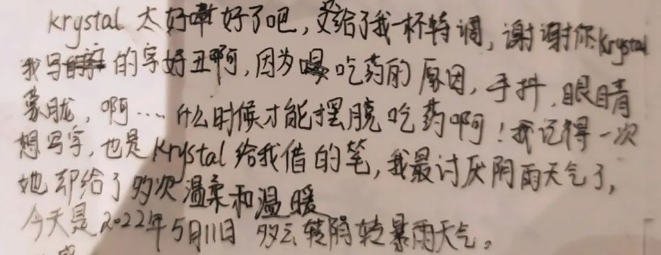 krystal 太好啊好了吧，又给了我一杯特调，谢谢你krystal
我写的字好丑啊，因为吃药的原因，手抖，眼睛
蒙胧，啊…… 什么时候才能摆脱吃药啊！我记得一次
想写字，也是krystal给我借的笔，我最讨厌阴雨天气了，
她却给了多次温柔和温暖
今天是2022年5月11日 多云转阴转暴雨天气。